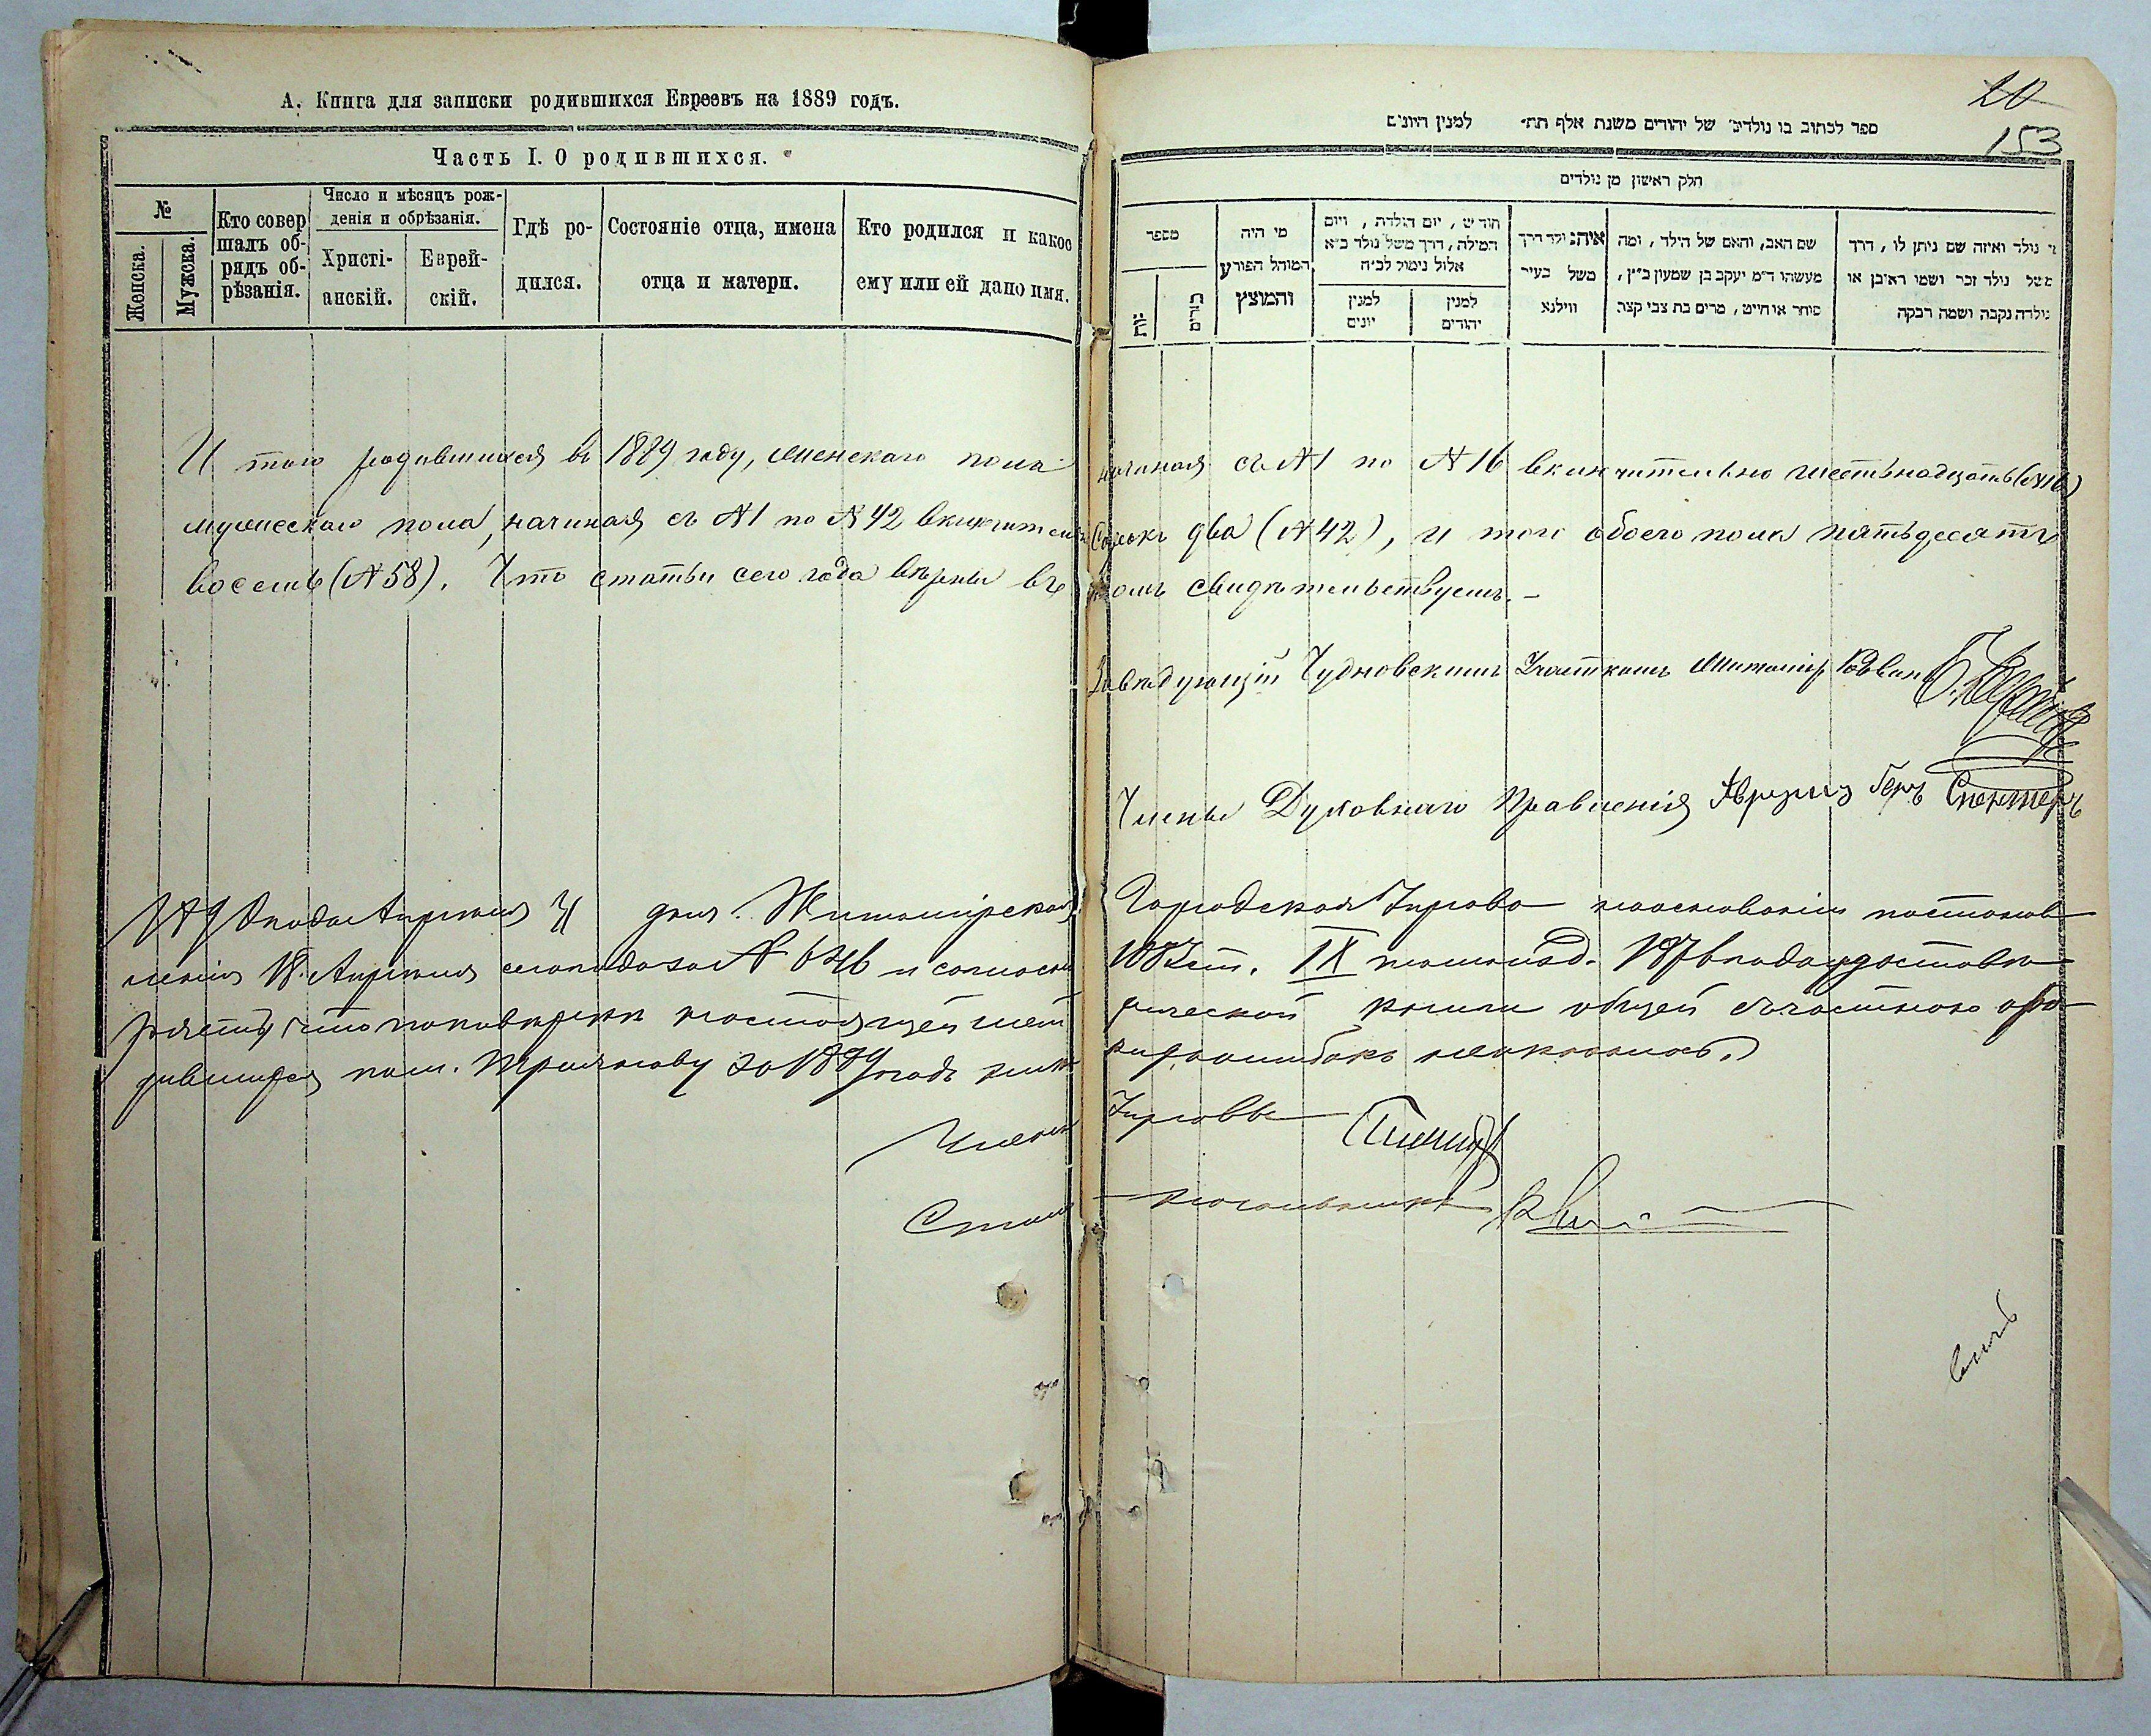 А. Книга для записки родившихся Евреевъ на 1889 годъ.
Часть I. О родившихся.
№
Женска.
Мужска.
Кто совер
шалъ об-
рядъ об-
рѣзанія.
Число и мѣсяцъ рож-
денія и обрѣзанія.
Христі-
анскій.
Еврей-
скій.
Гдѣ ро-
дился.
Состояніе отца, имена
отца и матери.
Кто родился и какое
ему или ей дано имя.
20
153
ספר לכתוב בו נולדים של יהודים משנת אלף תת״ למנין היונים
חלק ראשון מן נולדים
מספר
זכרים
מי היה
המוהל הפורע
והמוצץ
חודש, יום הולדת, ויום
המילה, דרך משל נולד כ״א
אלול נימול לכ״ח
למנין
יונים
למנין
יהודים
איה נולד דרך
משל בעיר
ווילנא
שם האב, והאם של הילד, ומה
מעשהו ד״מ יעקב בן שמעון כ״ץ,
סוחר או חייט, מרים בת צבי קצב
מי נולד ואיזה שם ניתן לו, דרך
משל נולד זכר ושמו ראובן או
נולדה נקבה ושמה רבקה
И того родившихся въ 1889 году, женскаго пола начиная съ №1 по №16 включительно шестьнадцать (№16)
мужескаго пола, начиная съ №1 по №42 включительно Сорокъ два (№42), и того обоего пола пятьдесятъ
восемь (№58). Что статьи сего года вѣрны въ томъ свидѣтельствуемъ. –
Завѣдующій Чудновскимъ Участкомъ Житомір. Раввинъ
Члены Духовнаго Правленія Геръ
Апрѣля дня. Житомірская Городская Управа на основаніи постанов
ленія 18 Апрѣля сего года за № 646 и согласно 1083 ст. IX тома изд. 1876 года удостовѣ
ряетъ, что по повѣркѣ настоящей метрической книги общей съ частною о ро
дившихся мѣст. за 1889 годъ никакихъ ошибокъ не оказалось.
Членъ Управы
Столоначальникъ